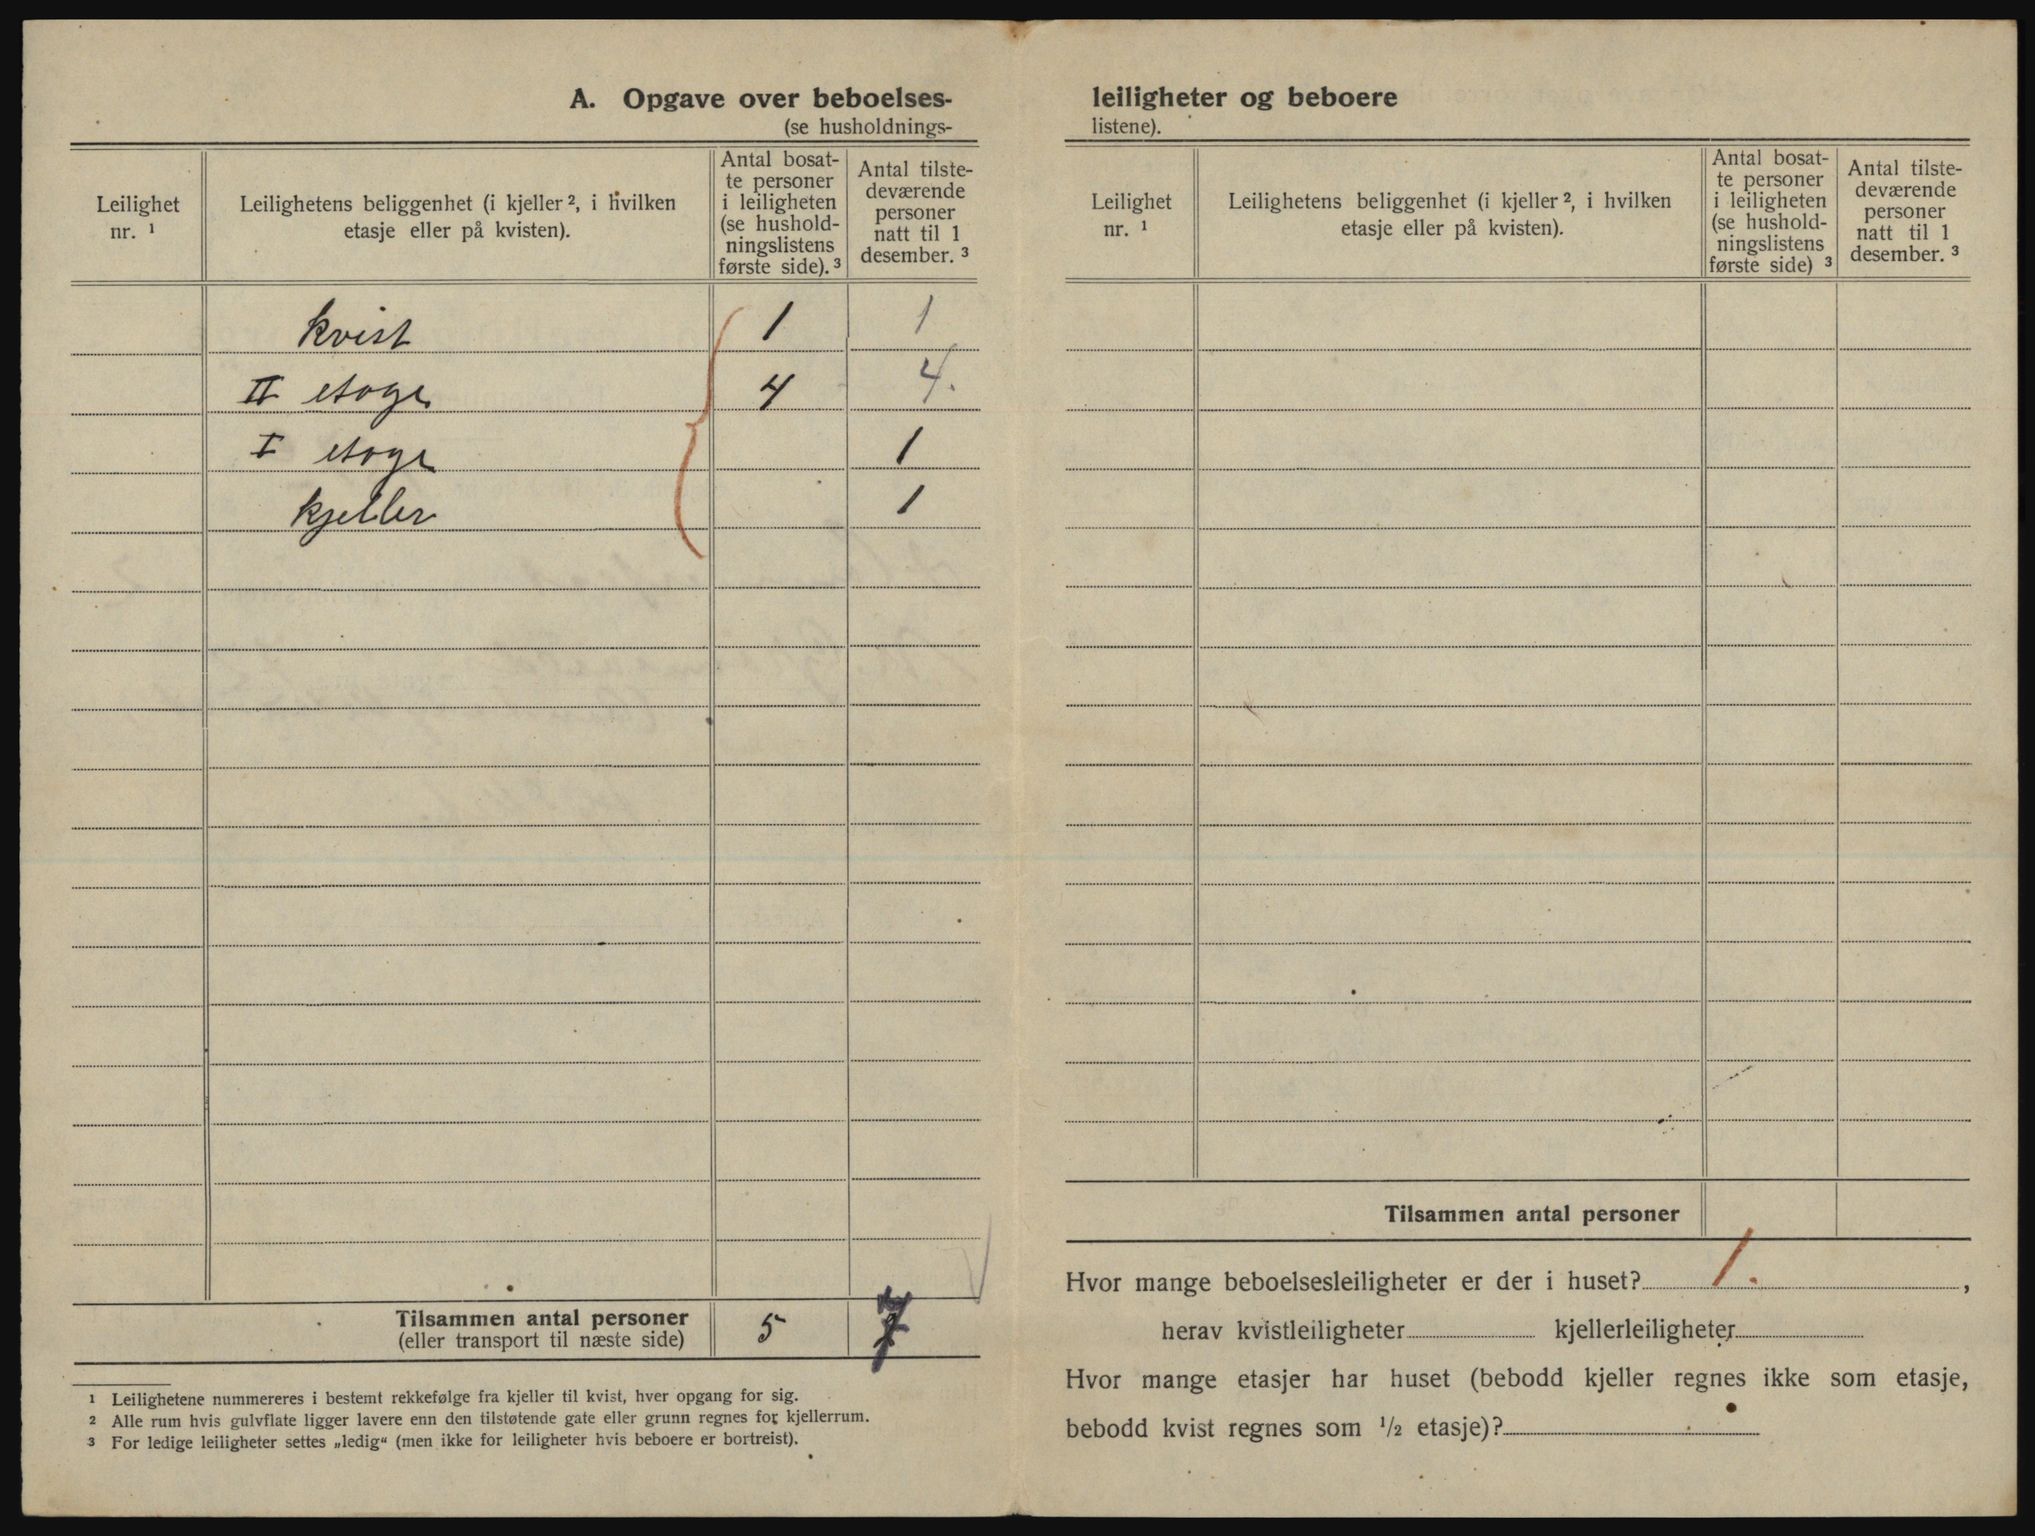 A. Opgave over beboelses-
(se husholdnings-
Leilighet nr. ¹
Leilighetens beliggenhet (i kjeller ², i hvilken etasje eller på kvisten).
Antal bosat-
te personer
i leiligheten
(se hushold-
ningslistens
første side). ³
Antal tilste-
deværende
personer
natt til 1
desember. ³
kvist 1 1
II etage 4 4.
I etage 1
kjeller 1
Tilsammen antal personer 5 7
(eller transport til næste side)
¹ Leilighetene nummereres i bestemt rekkefølge fra kjeller til kvist, hver opgang for sig.
² Alle rum hvis gulvflate ligger lavere enn den tilstøtende gate eller grunn regnes for kjellerrum.
³ For ledige leiligheter settes „ledig“ (men ikke for leiligheter hvis beboere er bortreist).
leiligheter og beboere
listene).
Leilighet nr. ¹
Leilighetens beliggenhet (i kjeller ², i hvilken etasje eller på kvisten).
Antal bosat-
te personer
i leiligheten
(se hushold-
ningslistens
første side) ³
Antal tilste-
deværende
personer
natt til 1
desember. ³
Tilsammen antal personer
Hvor mange beboelsesleiligheter er der i huset? 1. ,
herav kvistleiligheter kjellerleiligheter
Hvor mange etasjer har huset (bebodd kjeller regnes ikke som etasje,
bebodd kvist regnes som ½ etasje)?